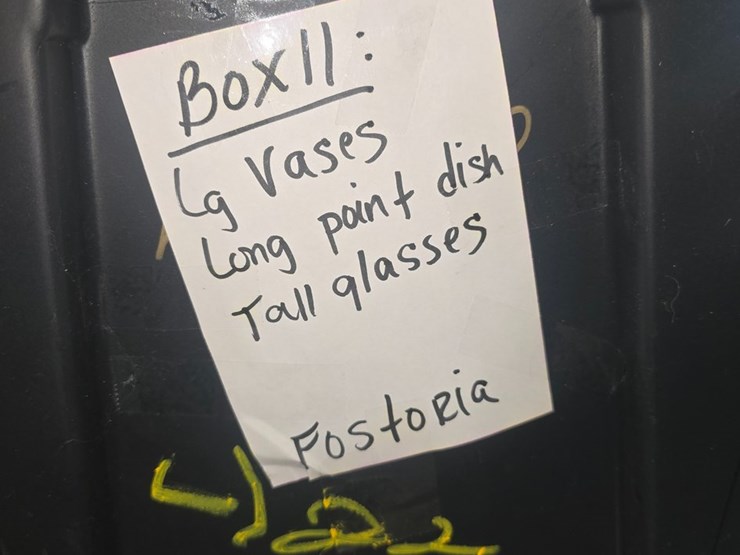 Box 11:
Lg Vases
Long point dish
Tall glasses
Fostoria